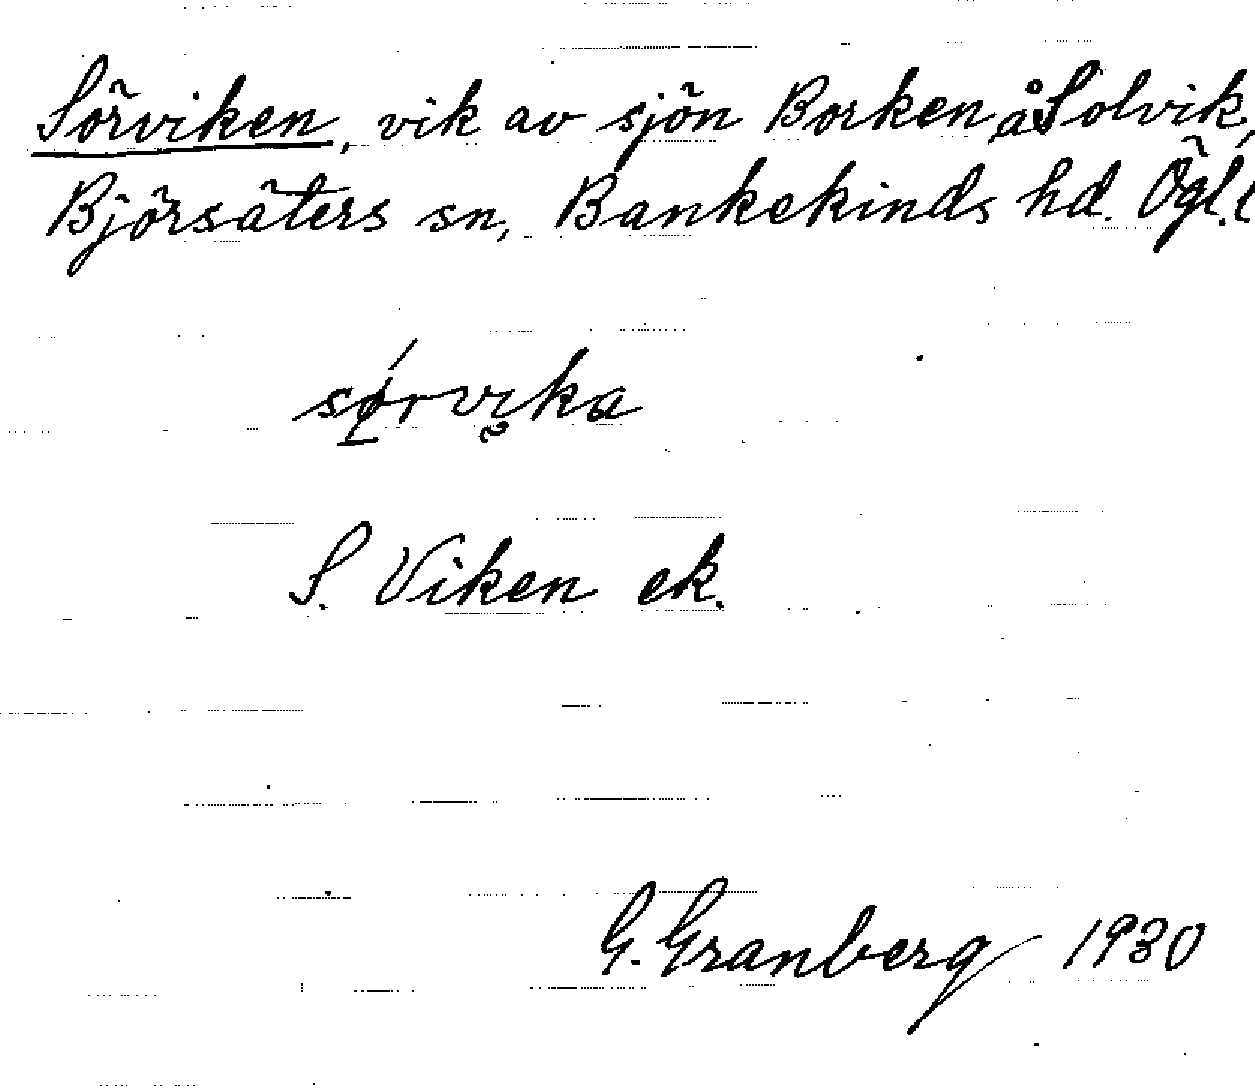 Sörviken, vik av sjön Borken, å Solvik,
Björsäters sn, Bankekinds hd. Ögl.
sørvika
S. Viken ek.
G. Granberg 1930